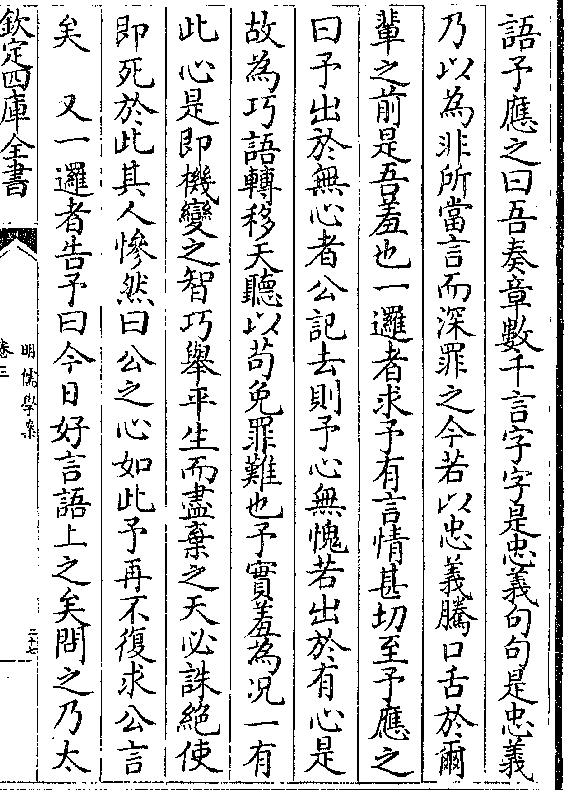 語予應之曰吾奏章數千言字字是忠義句句是忠義
乃以為非所當言而深罪之今若以忠義騰口舌於爾
輩之前是吾羞也一邏者求予有言情甚切至予應之
曰予出於無心者公記去則予心無愧若出於有心是
故為巧語轉移天聽以苟免罪難也予實羞為况一有
此心是即機變之智巧舉平生而盡棄之天必誅絕使
即死於此其人慘然曰公之心如此予再不復求公言
矣　又一邏者告予曰今日好言語上之矣問之乃太
欽定四庫全書
明儒學案
卷三
三十七